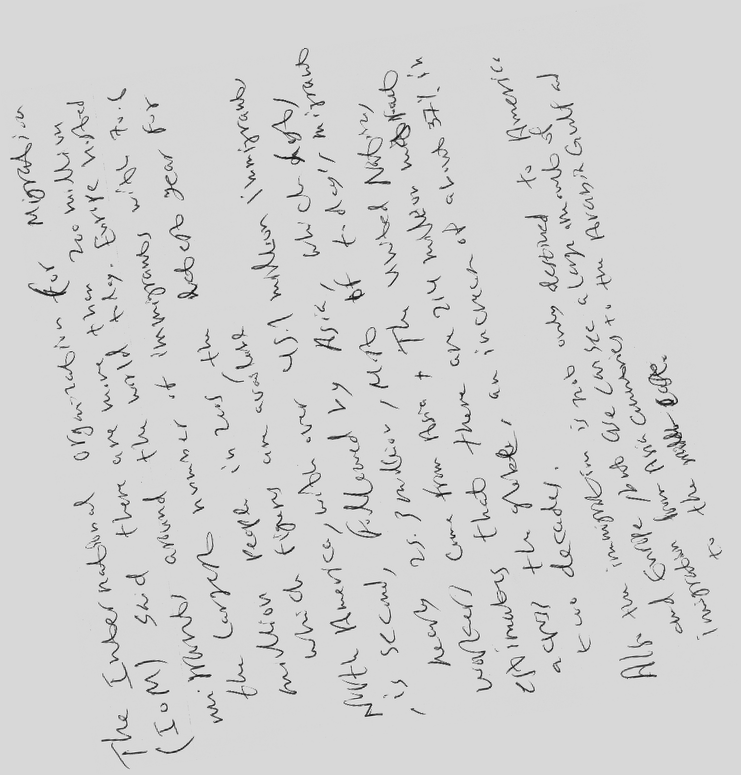 The International organization for Migration
(IOM) said there are more than 200 million
migrants around the world today. Europe hosted
the largest number of immigrants with 70.6
million people in 2005 the latest year for
which figures are available
North America, with over 45.1 million immigrants
is second, followed by Asia, which hosts
nearly 25.3 million, Most of today's migrant
workers come from Asia + The United Nations
estimates that there are 214 million migrants
across the globe, an increase of about 37% in
two decades.
Also the immigration is not only destined to America
and Europe, but we can see a large amount of
immigration from Asia countries to the Arabia Gulf and
to the